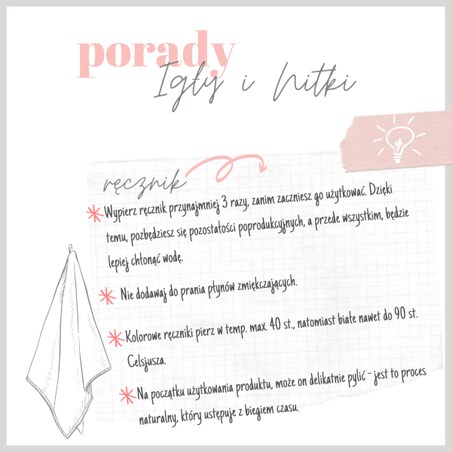 porady
Igły i Nitki
ręcznik
Wypierz ręcznik przynajmniej 3 razy, zanim zaczniesz go użytkować. Dzięki
temu, pozbędziesz się pozostałości poprodukcyjnych, a przede wszystkim, będzie
lepiej chłonąć wodę.
Nie dodawaj do prania płynów zmiękczających.
Kolorowe ręczniki pierz w temp. max. 40 st., natomiast białe nawet do 90 st.
Celsjusza.
Na początku użytkowania produktu, może on delikatnie pylić - jest to proces
naturalny, który ustępuje z biegiem czasu.